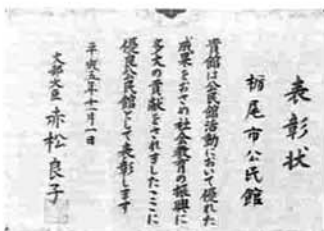 表彰状
栃尾市公民館
貴館は公民館活動において優れた
成果をおさめ社会教育の振興に
多大の貢献をされましたここに
優良公民館として表彰します
平成五年十一月一日
文部大臣 赤松良子